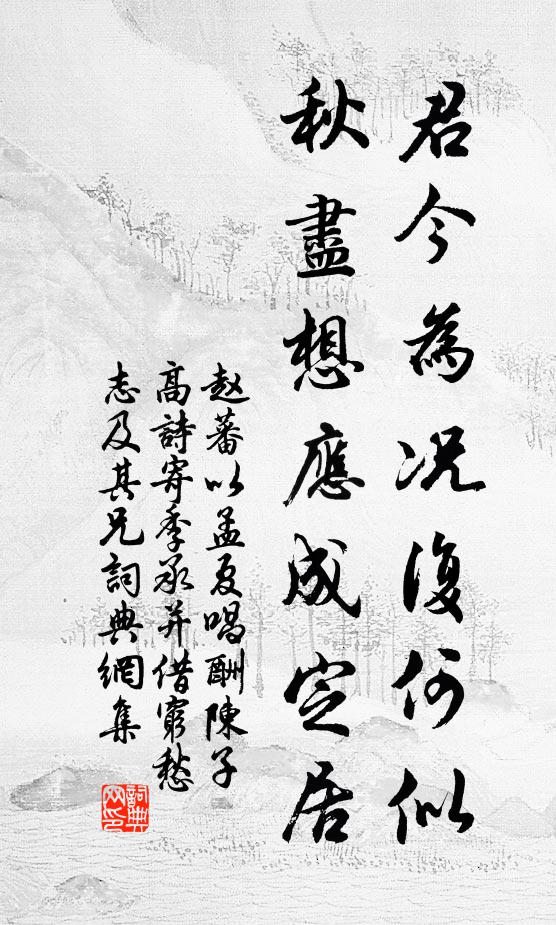 君今為況復何似
秋盡想應成定居
赵蕃以孟夏唱酬陳子
高詩寄季承并借窮愁
志及其兄詞典網集
詞典網印